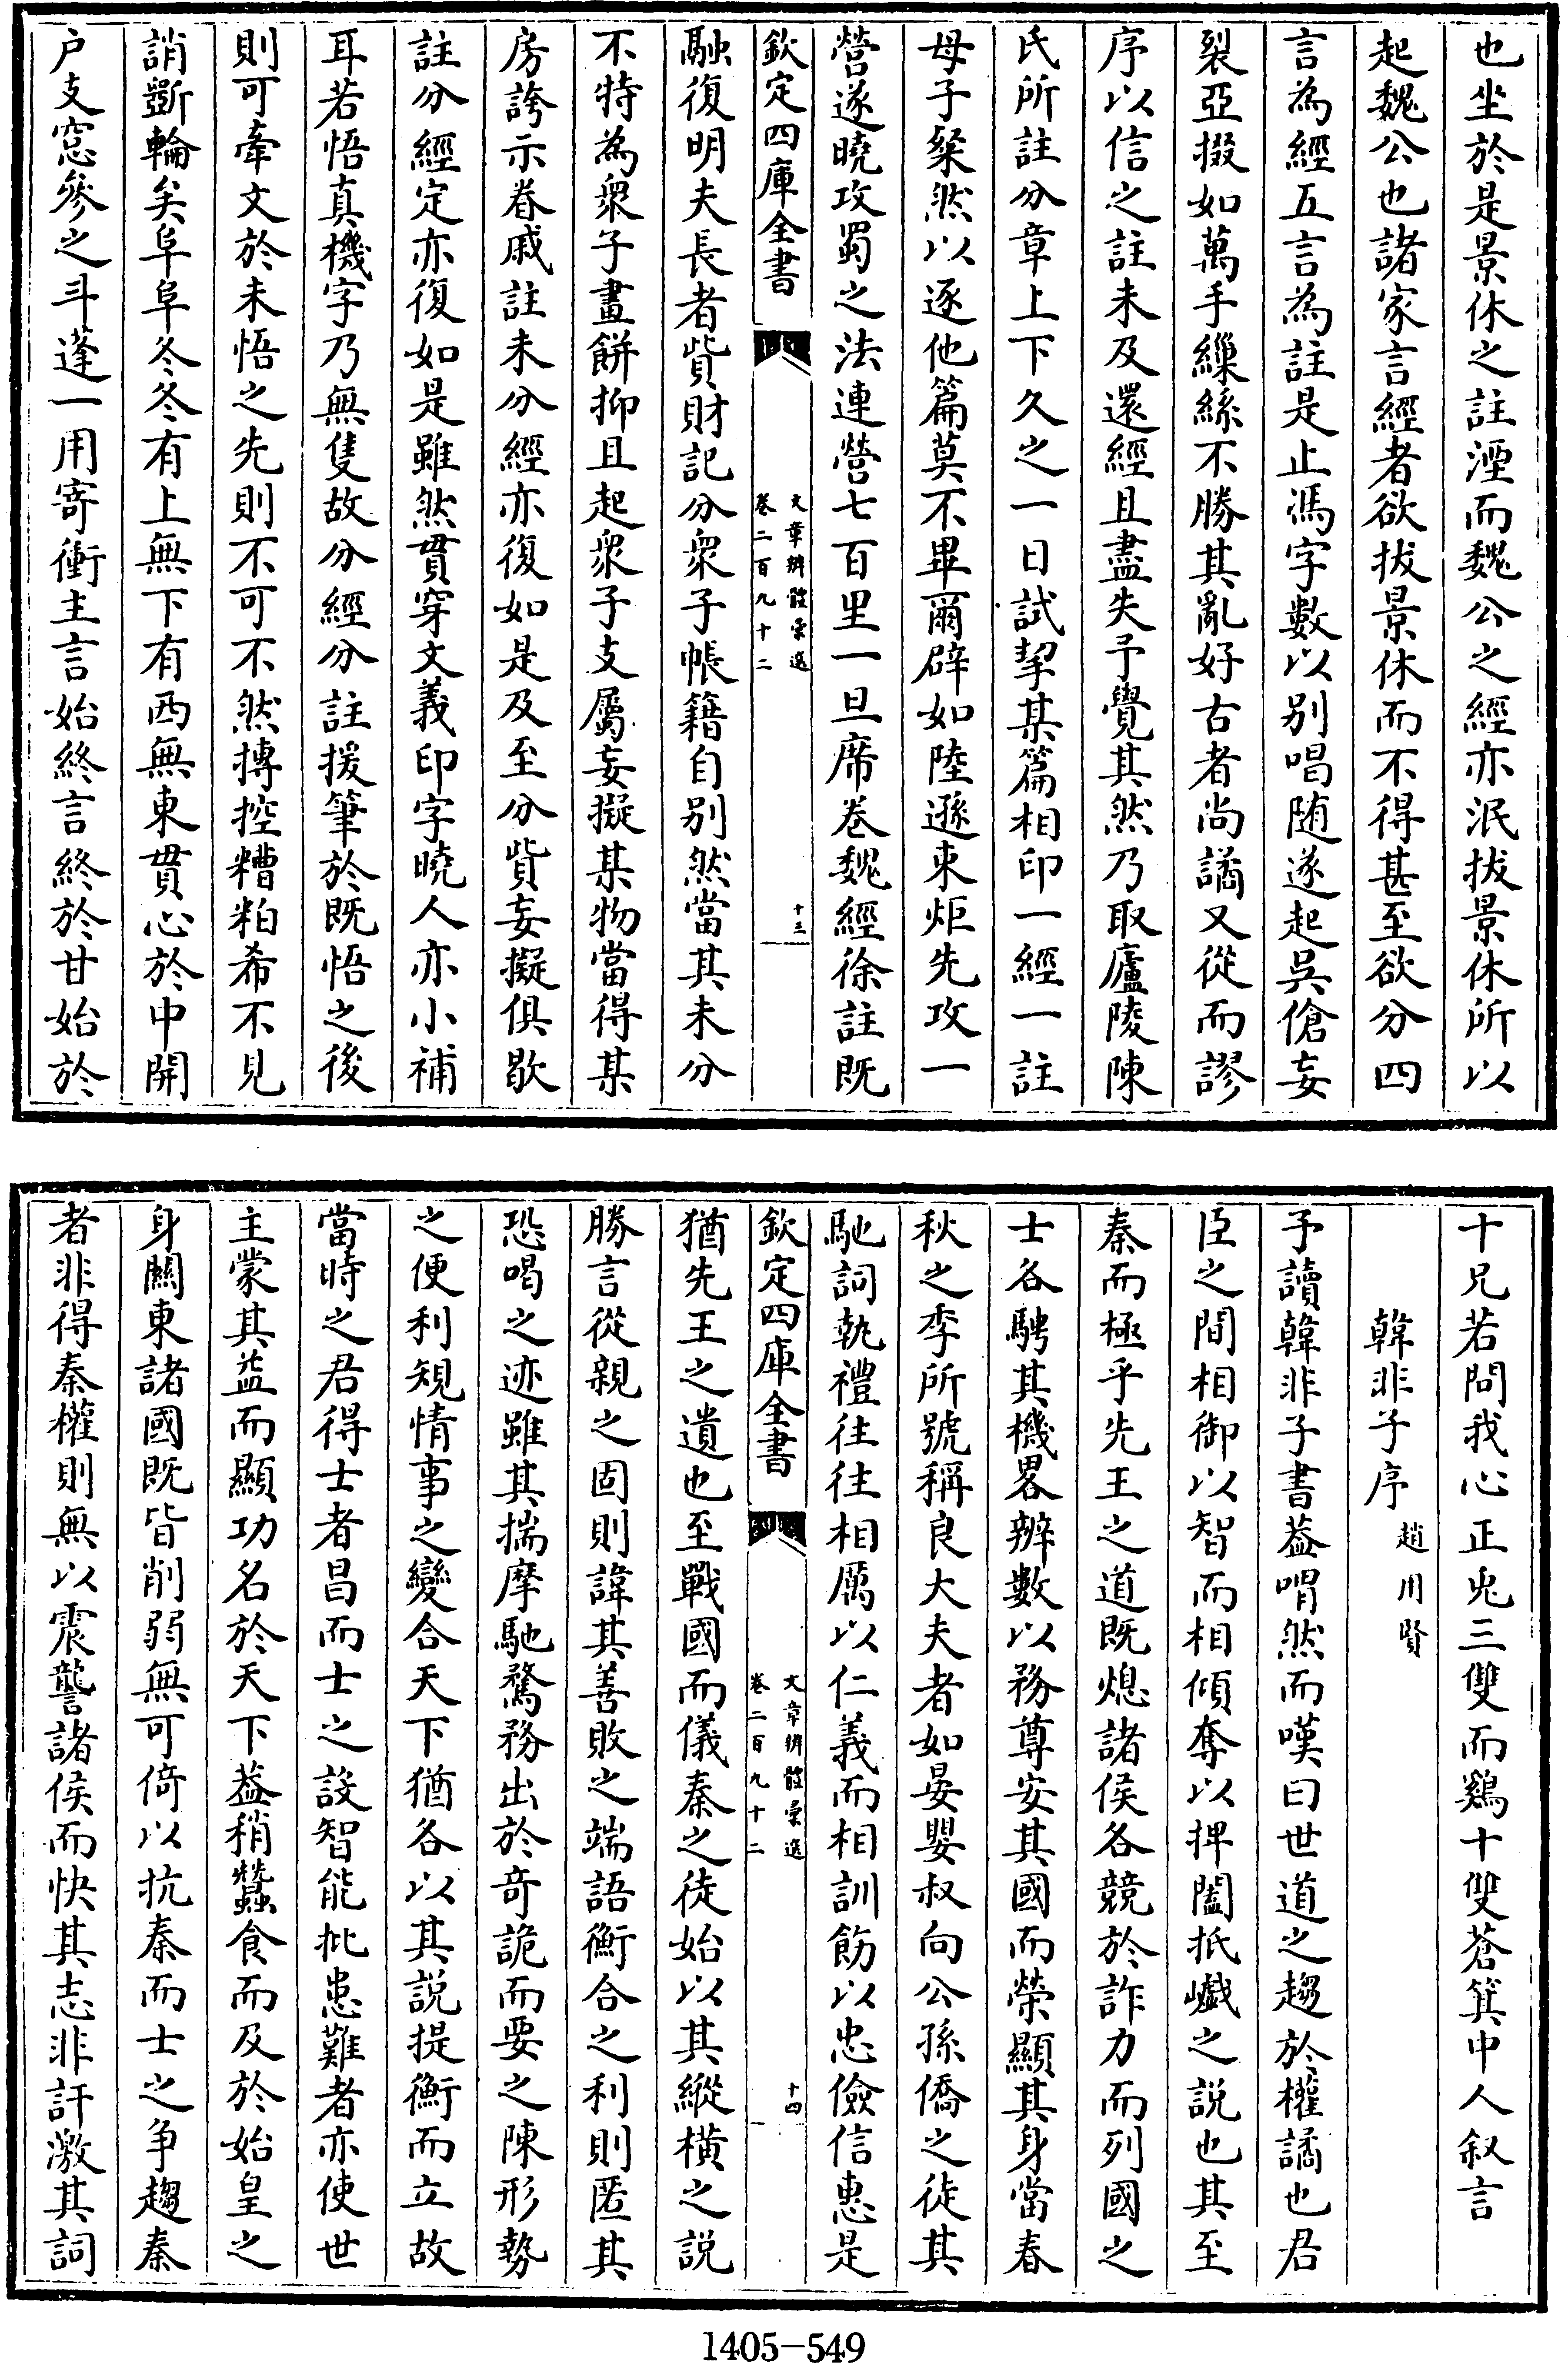 也坐於是景休之註湮而魏公之經亦泯拔景休所以
起魏公也諸家言經者欲拔景休而不得甚至欲分四
言為經五言為註是止馮字數以别唱随遂起吳傖妄
裂亞掇如萬手繅絲不勝其亂好古者尚譎又從而謬
序以信之註未及還經且盡失予覺其然乃取廬陵陳
氏所註分章上下久之一日試挈其篇相印一經一註
母子粲然以逐他篇莫不畢爾辟如陸遜束炬先攻一
營遂曉攻蜀之法連營七百里一旦席卷魏經徐註既
欽定四庫全書 文章辨體彚選 卷二百九十二 十三
融復明夫長者貲財記分衆子帳籍自别然當其未分
不特為衆子畫餅抑且起衆子支屬妄擬某物當得某
房誇示眷戚註未分經亦復如是及至分貲妄擬俱歇
註分經定亦復如是雖然貫穿文義印字曉人亦小補
耳若悟真機字乃無隻故分經分註援筆於既悟之後
則可牽文於未悟之先則不可不然摶控糟粕希不見
誚斲輪矣阜阜冬冬有上無下有西無東貫心於中開
户支窓參之斗蓬一用寄衝主言始終言終於甘始於
十兄若問我心正兎三雙而鷄十雙蒼箕中人叙言
韓非子序 趙用賢
予讀韓非子書葢喟然而嘆曰世道之趨於權譎也君
臣之間相御以智而相傾奪以捭闔抵巇之説也其至
秦而極乎先王之道既熄諸侯各競於詐力而列國之
士各騁其機畧辨數以務尊安其國而榮顯其身當春
秋之季所號稱良大夫者如晏嬰叔向公孫僑之徒其
馳詞執禮往往相厲以仁義而相訓飭以忠儉信惠是
欽定四庫全書 文章辨體彚選 卷二百九十二 十四
猶先王之遺也至戰國而儀秦之徒始以其縱橫之説
勝言從親之固則諱其善敗之端語衡合之利則匿其
恐喝之迹雖其揣摩馳騖務出於奇詭而要之陳形勢
之便利規情事之變合天下猶各以其説提衡而立故
當時之君得士者昌而士之設智能批患難者亦使世
主蒙其益而顯功名於天下葢稍蠶食而及於始皇之
身關東諸國既皆削弱無可倚以抗秦而士之爭趨秦
者非得秦權則無以震讋諸侯而快其志非訐激其詞
1405-549